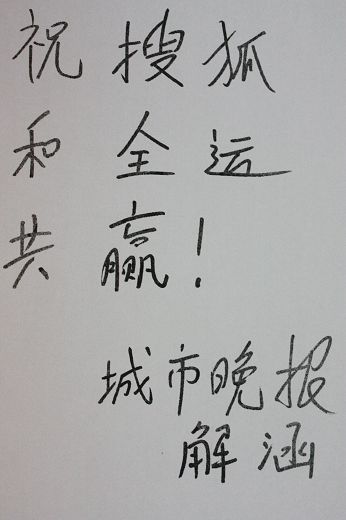 祝搜狐
和全运
共赢！
城市晚报
解涵